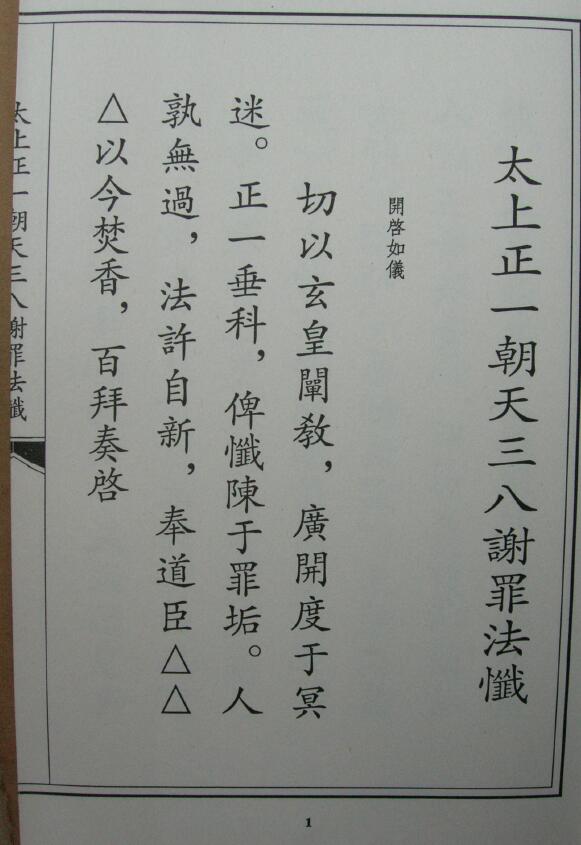 太上正一朝天三八謝罪法懺
開啓如儀
切以玄皇闡教，廣開度于冥
迷。正一垂科，俾懺陳于罪垢。人
孰無過，法許自新，奉道臣△△
△以今焚香，百拜奏啓
太上正一朝天三八謝罪法懺
1